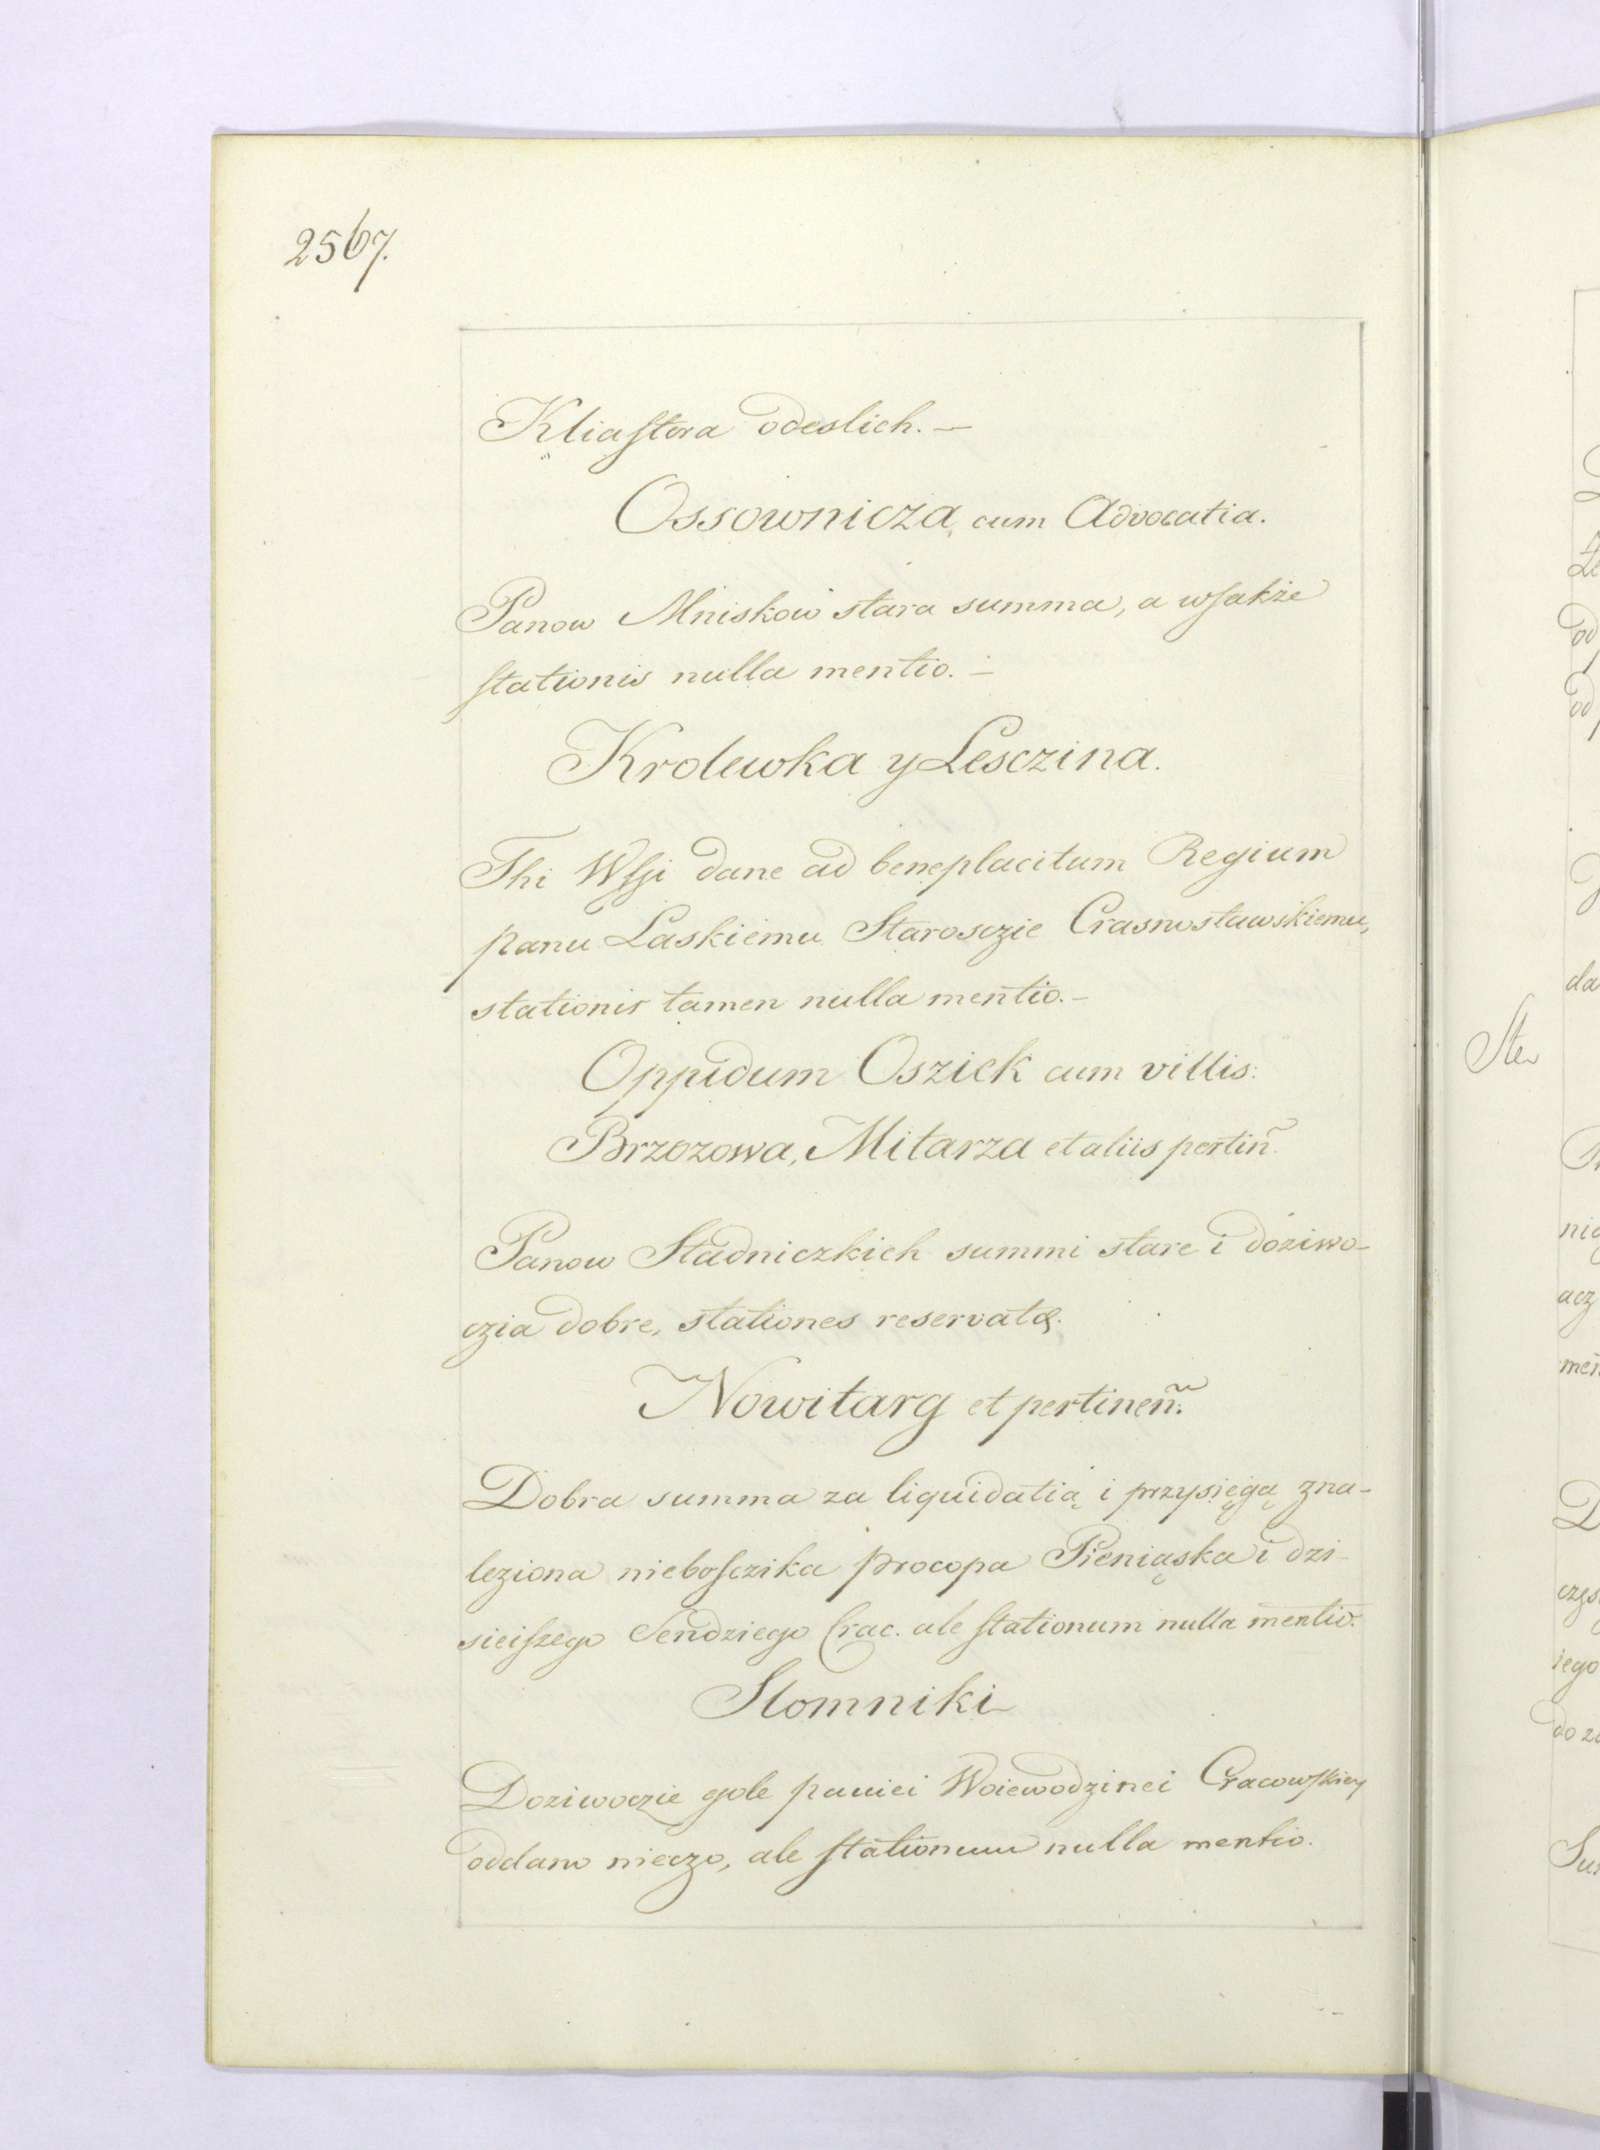 2567.
Kliasztora odeslich. —
Ossownicza, cum Advocatia.
Panow Mniskow stara summa, a wsakże
stationis nulla mentio. —
Krolewka y Lesczina.
Thi Wssi dane ad beneplacitum Regium
panu Laskiemu Starosczie Crasnostawskiemu,
stationis tamen nulla mentio. —
Oppidum Osziek cum villis:
Brzozowa, Mitarza et aliis pertiñ.
Panow Stadniczkich summi stare i doziwo-
czia dobre, stationes reservatę.
Nowitarg et pertineñ:
Dobra summa za liquidatią i przysięgą zna-
leziona niebosczika procopa Pieniąska i dzi-
sieiszego Sendziego Crac. ale stationum nulla mentio.
Slomniki
Doziwoczie gole paniei Woiewodzinei Cracowskiey
oddano nieczo, ale stationum nulla mentio.
Ste